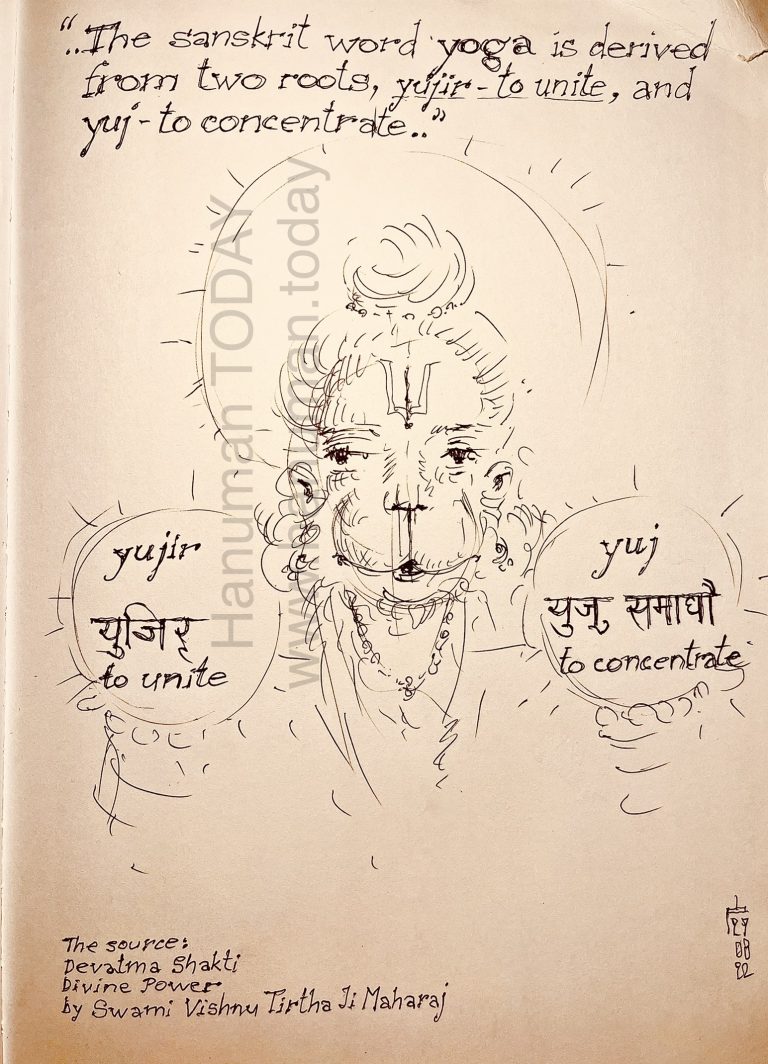 “..The sanskrit word yoga is derived
from two roots, yujir - to unite, and
yuj - to concentrate..”
Hanuman TODAY
www.hanuman.today
yujir
युजिर्
to unite
yuj
युज् समाधौ
to concentrate
The source:
Devatma Shakti
Divine Power
by Swami Vishnu Tirtha Ji Maharaj
29
08
22